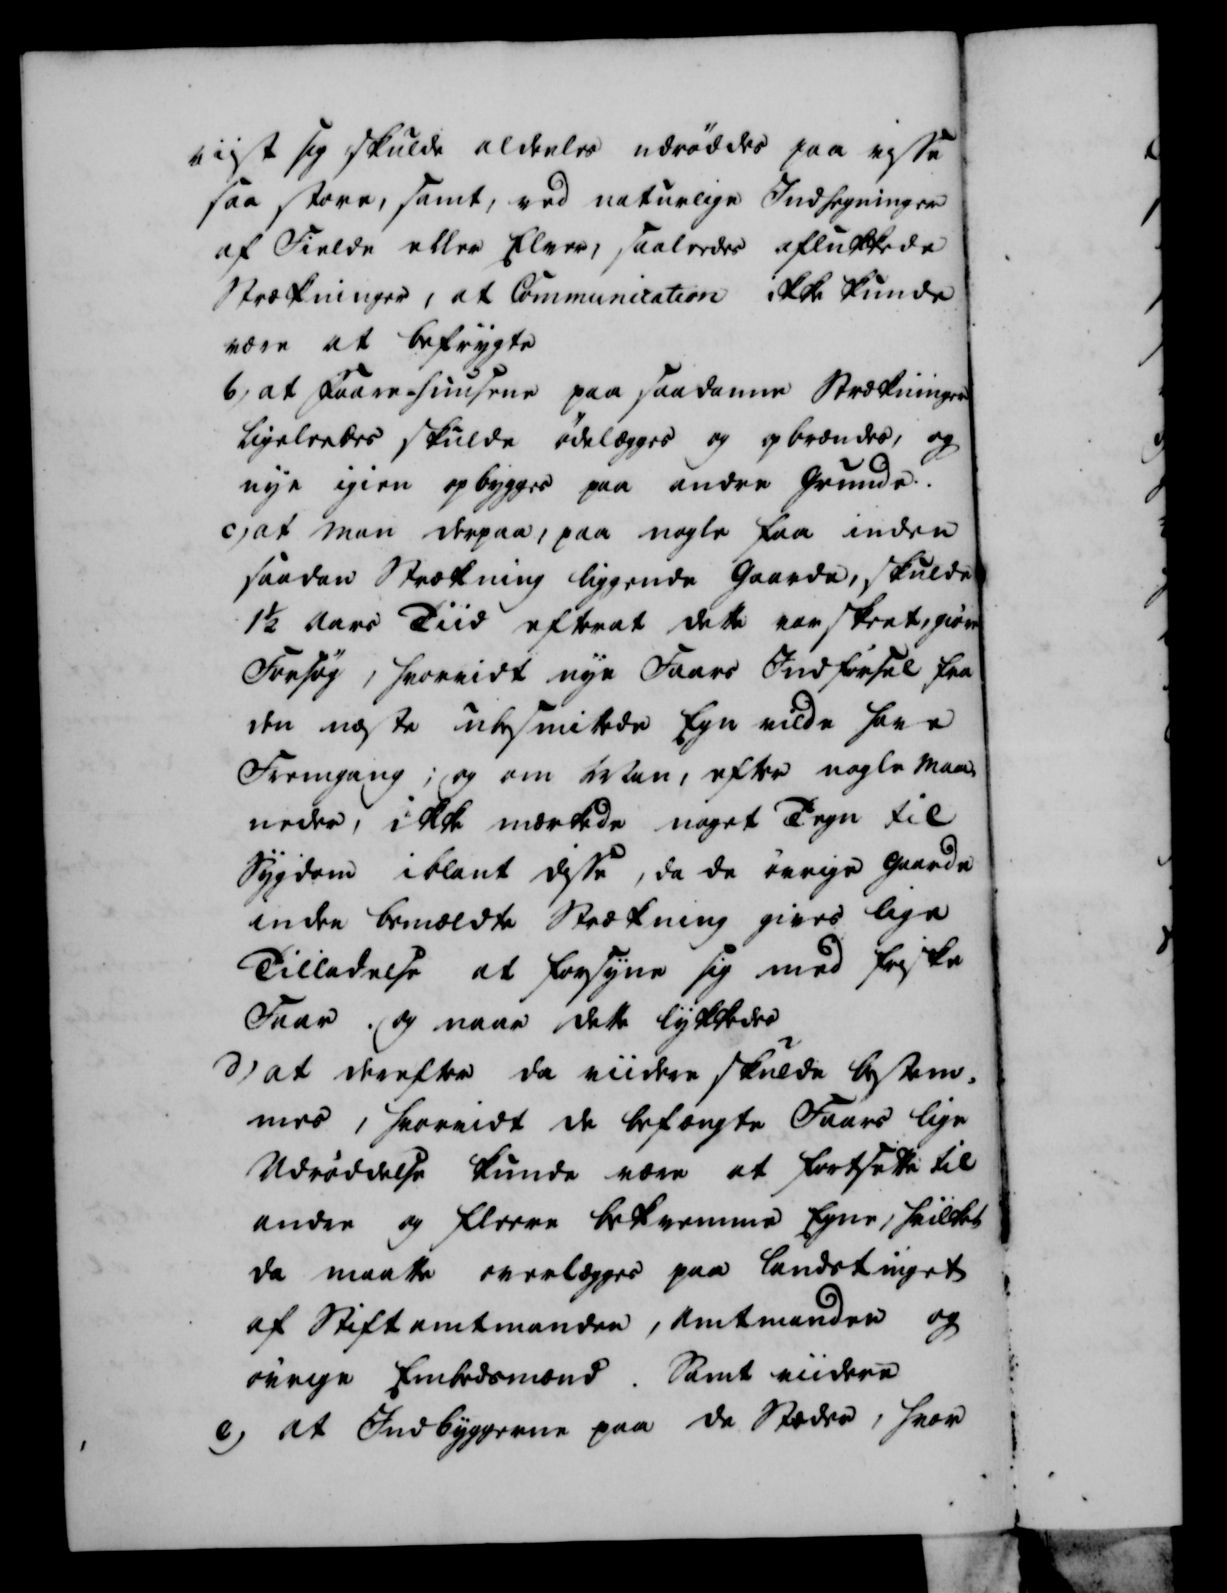 viist sig skulde aldeeles udröddes paa visse
saa store, samt, ved naturlige Indhegninger
af Fielde eller Elver, saaledes aflukkede
Strækninger, at Communication ikke kunde
være at befrygte
b, at Faare-Huusene paa saadanne Strækninger
ligeleedes skulde ödelægges og opbrændes, og
nye igien opbygges paa andre Grunde.
c, at man derpaa, paa nogle faa inden
saadan Strækning liggende Gaarde, skulde
1½ Aars Tiid efterat dette var skeet, giöre
Forsög, hvorvidt nye Faars Indförsel fra
den næste ubesmittede Egn vilde have
Fremgang; og om Man, efter nogle Maa-
neder, ikke mærkede noget Tegn til
Sygdom iblant disse, da de övrige Gaarde
inden bemældte Strækning gives lige
Tilladelse at forsyne sig med friske
Faar. og naar dette lykkedes
d, at derefter da viidere skulde bestem-
mes, hvorvidt de befængte Faars lige
Udröddelse kunde være at fortsætte til
andre og fleere bekvemme Egne, hvilket
da maatte overlægges paa Landstinget
af Stiftamtmanden, Amtmanden og
övrige Embedsmænd. Samt viidere
e, at Indbyggerne paa de Stæder, hvor